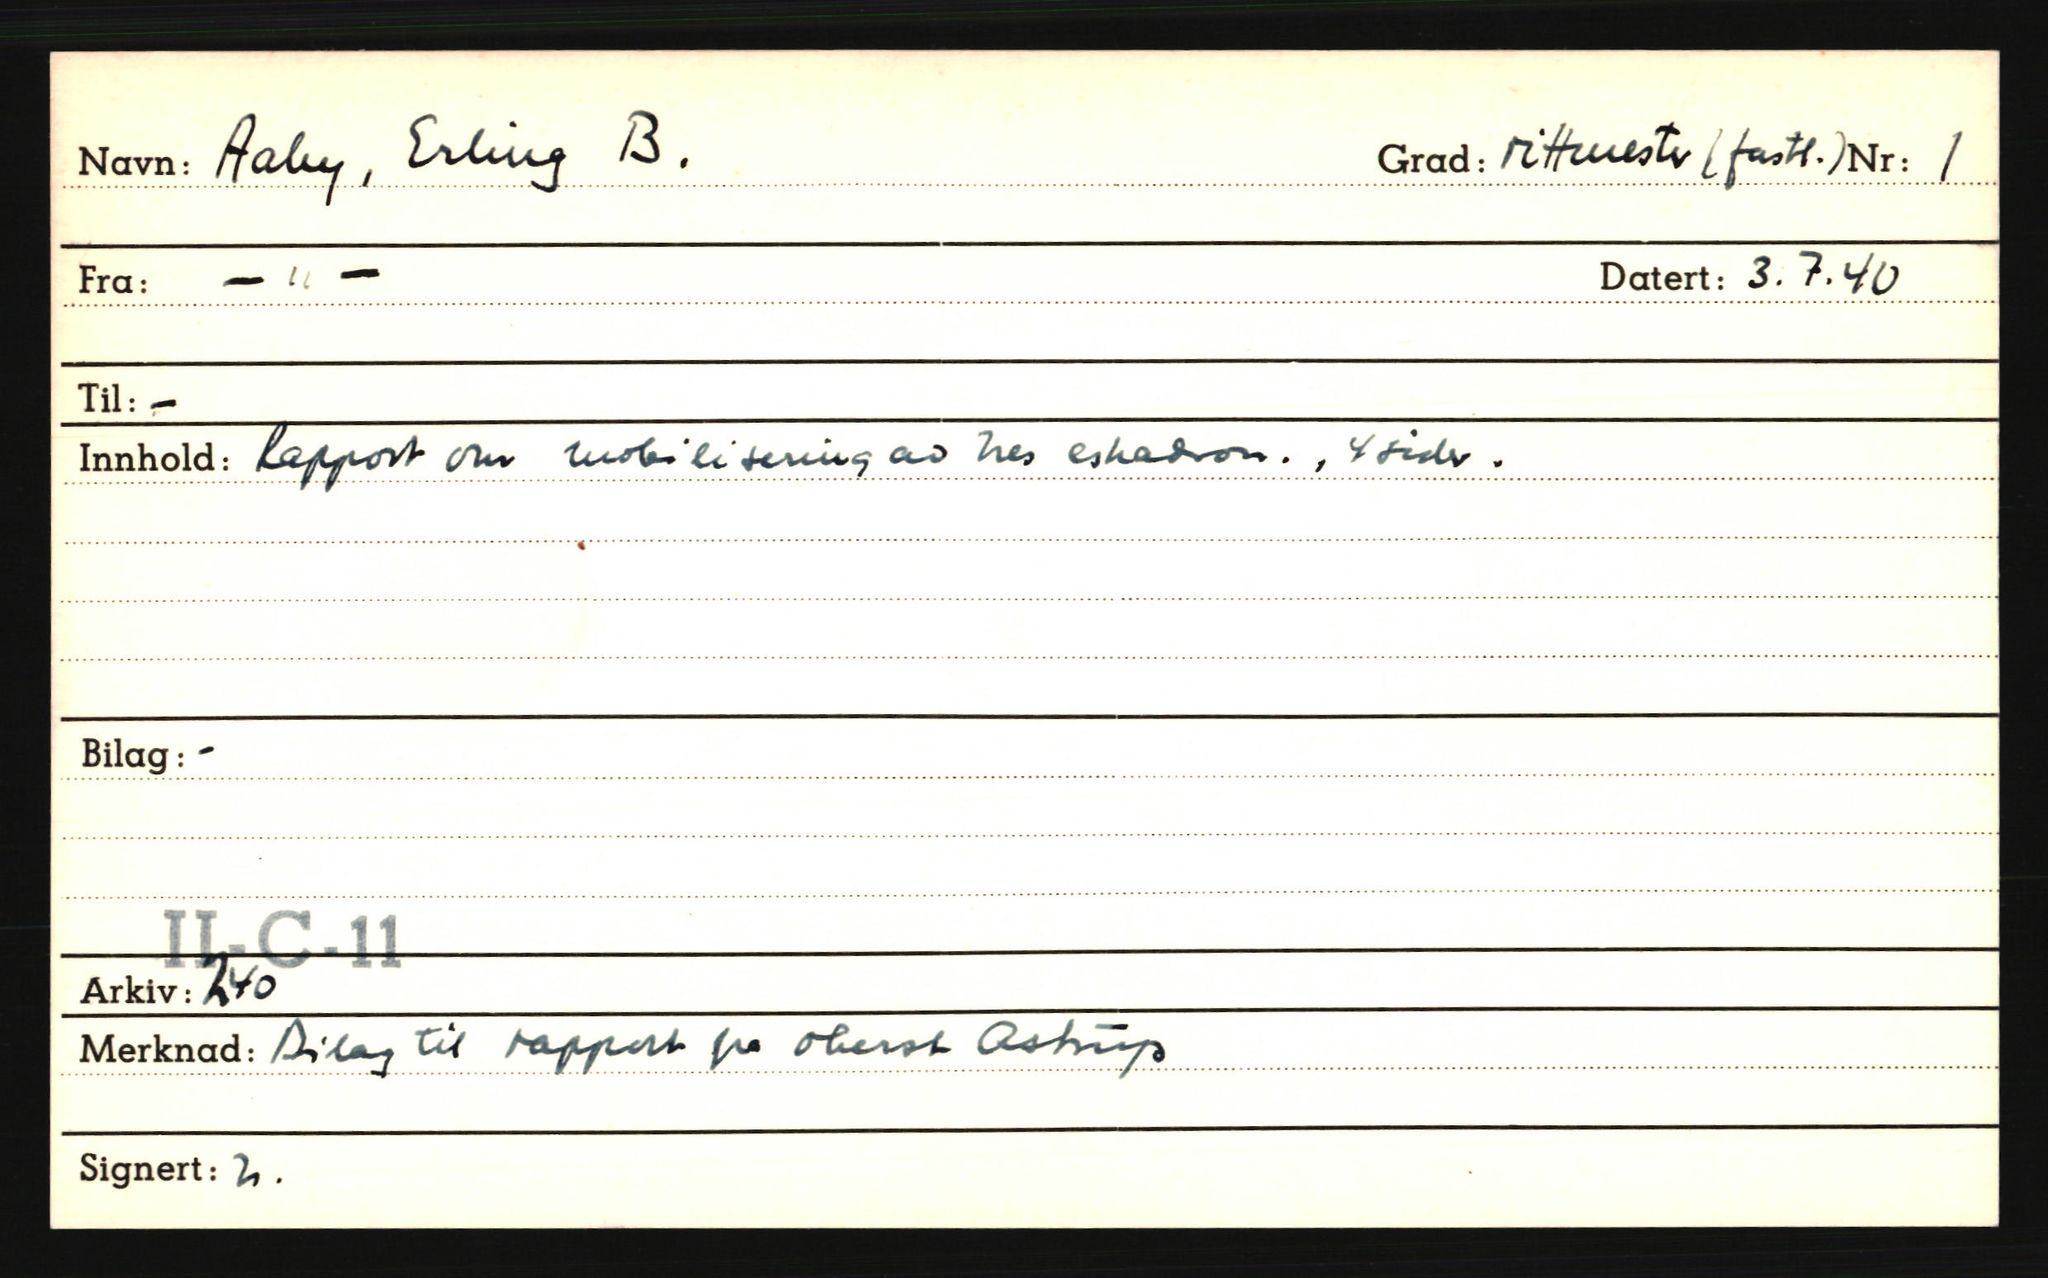 Navn: Aaby, Erling B. Grad: rittmester (fastl.) Nr: 1
Fra: — " — Datert: 3.7.40
Til: -
Innhold: Rapport om mobilisering av Nes eskadron., 4 sider.
Bilag: -
II-C-11
Arkiv: 240
Merknad: Bilag til rapport fra oberst Astrup
Signert: